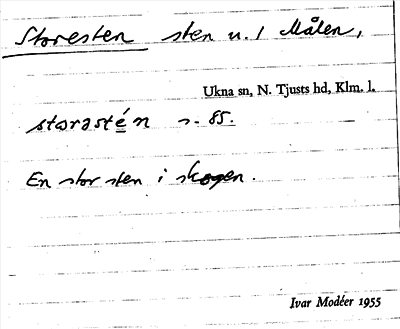 Storesten sten u. / Målen,
Ukna sn, N. Tjusts hd, Klm. l.
storəstén s. 85.
En stor sten i skogen.
Ivar Modéer 1955